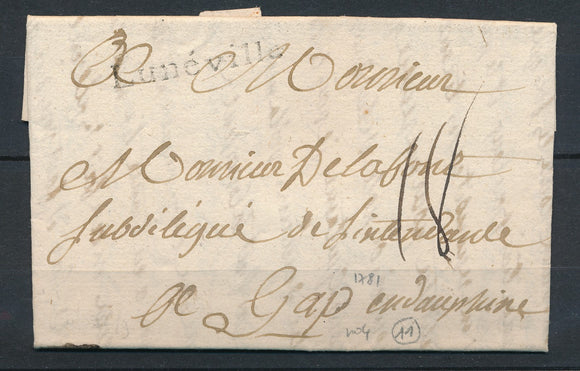 Lunéville
A Monsieur
Monsieur Delafont
subdélégué de l'intendance
18
1781
A Gap en dauphiné
no4 11